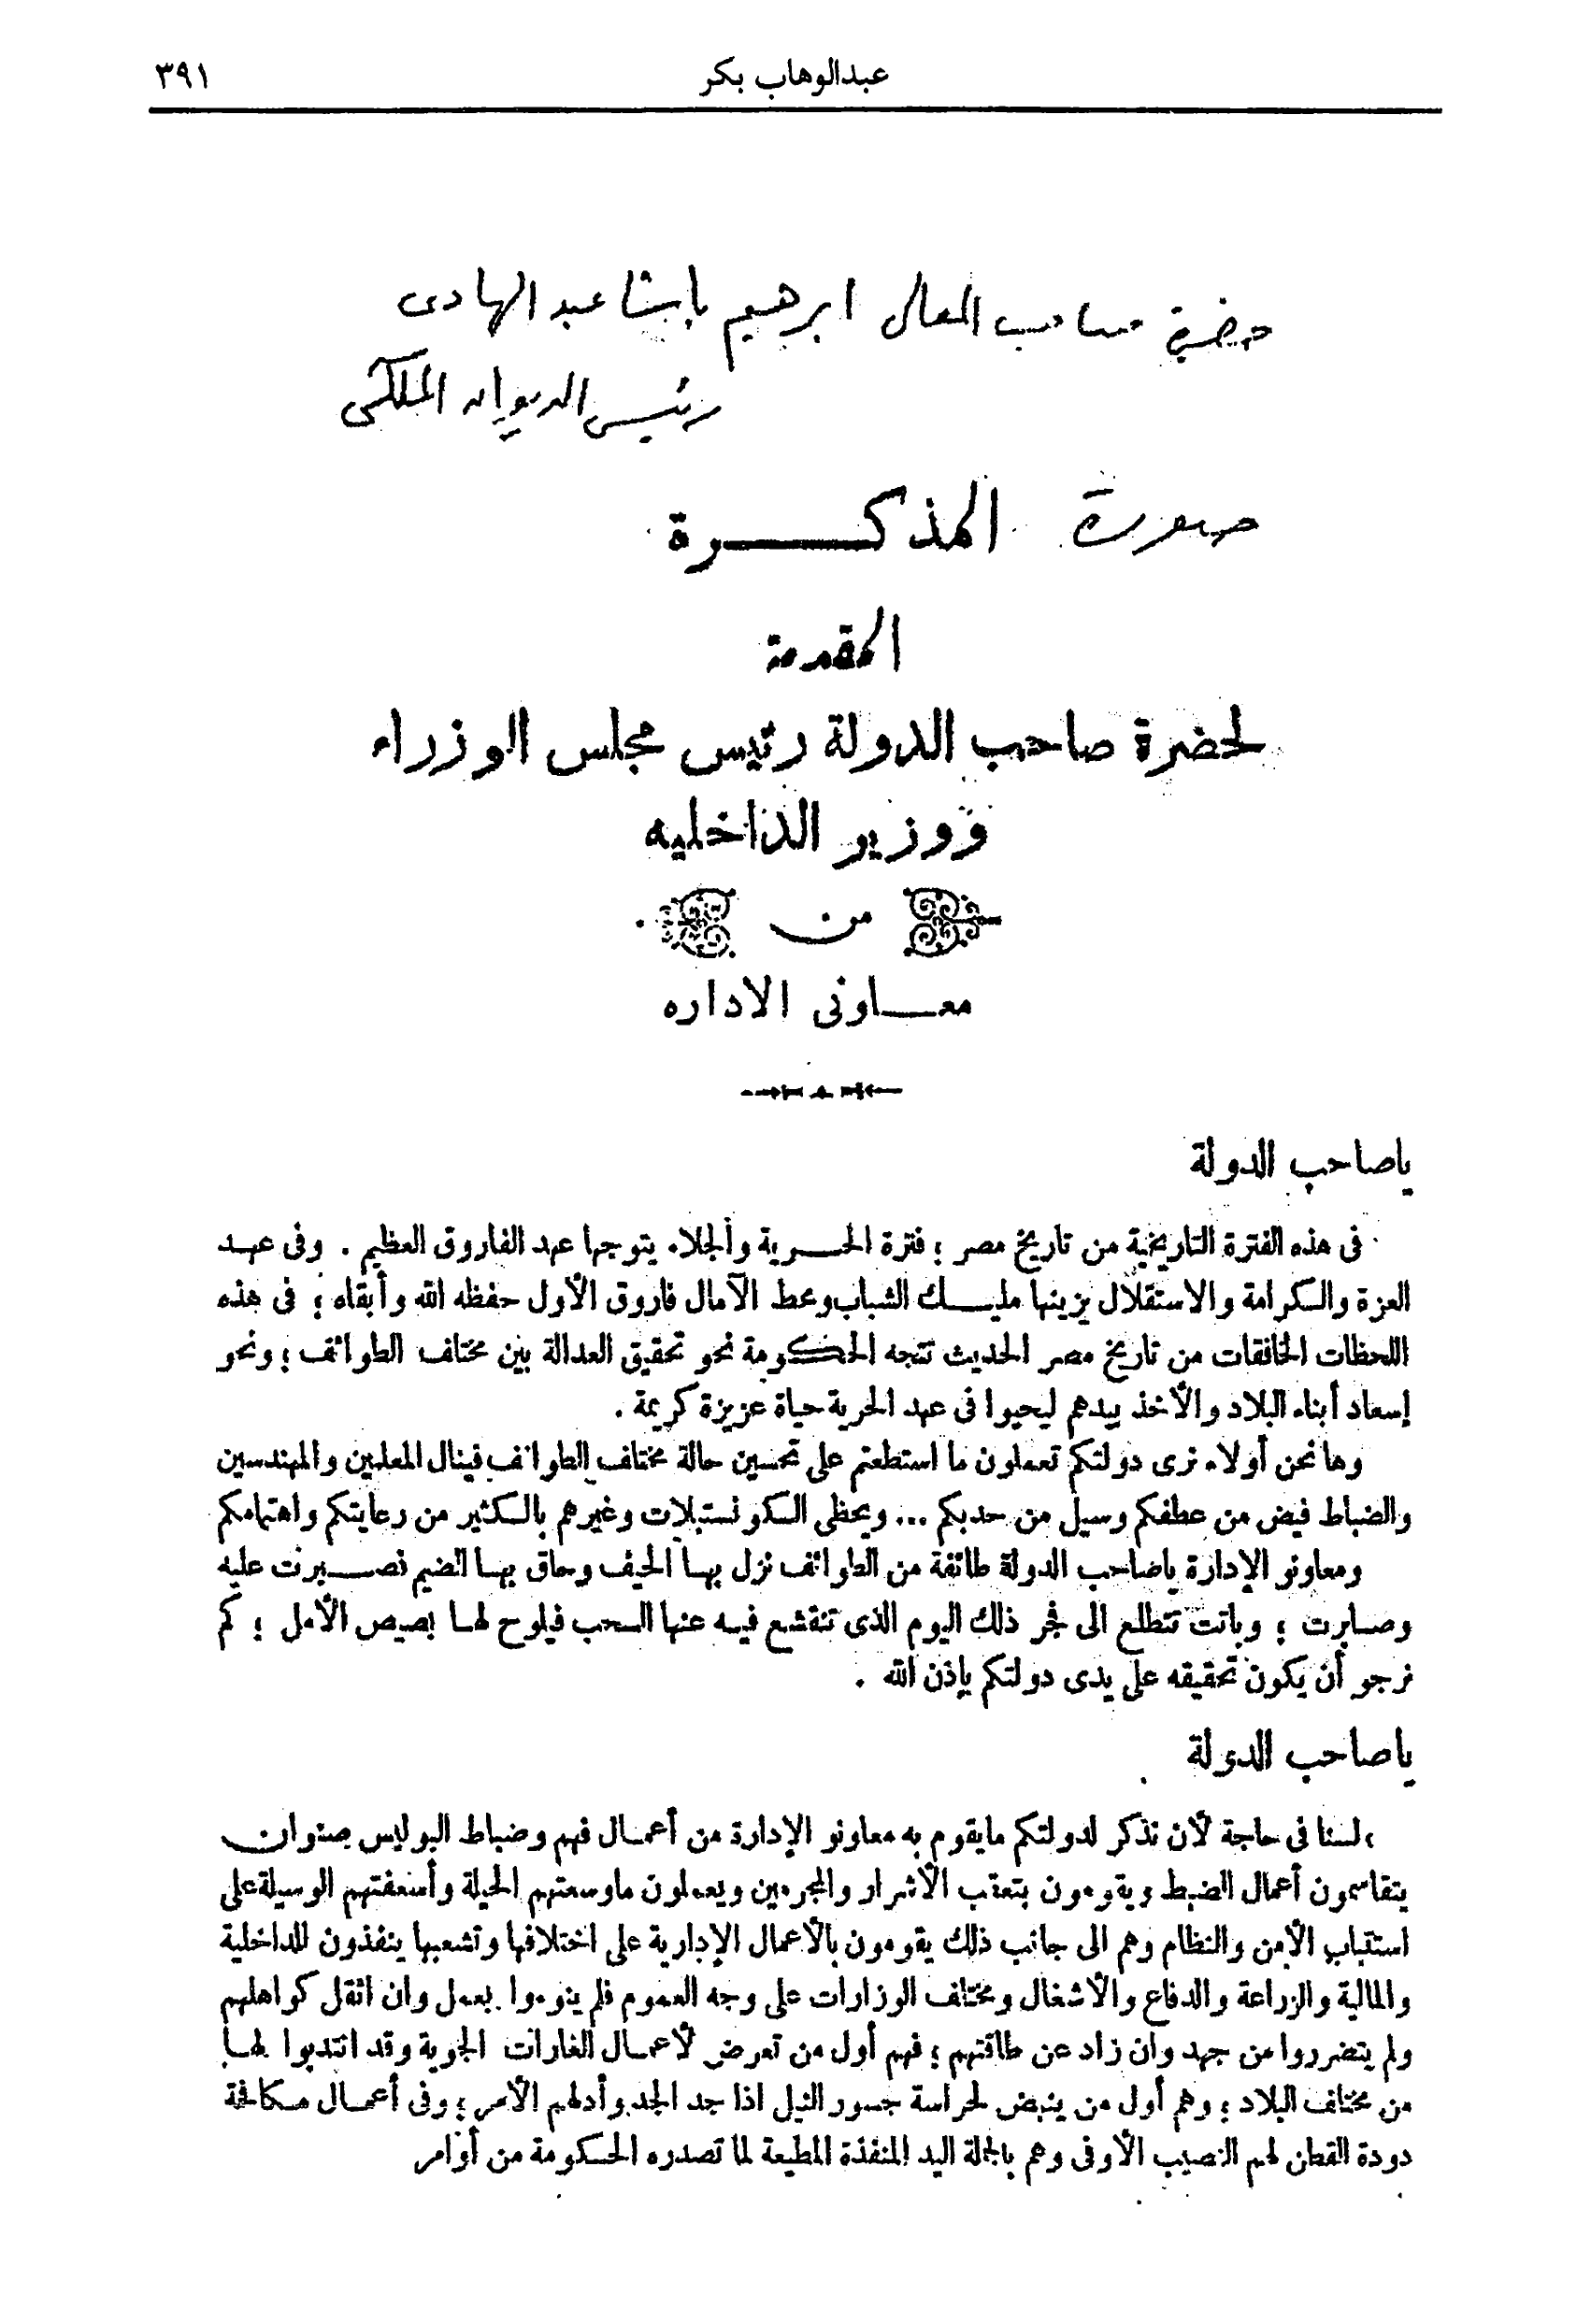 عبدالوهاب بكر
٣٩١
حضرة صاحب المعالى ابرهيم باشا عبد الهادى
رئيس الديوان الملكى
صورة المذكرة
المقدمة
لحضرة صاحب الدولة رئيس مجلس الوزراء
ووزير الداخليه
من
معاونى الاداره
ياصاحب الدولة
فى هذه الفترة التاريخية من تاريخ مصر ؛ فترة الحرية والجلاء يتوجها عهد الفاروق العظيم . وفى عهد
العزة والكرامة والاستقلال يزينها مليك الشباب ومحط الآمال فاروق الأول حفظه الله وأبقاه ؛ فى هذه
اللحظات الخافقات من تاريخ مصر الحديث تتجه الحكومة نحو تحقيق العدالة بين مختلف الطوائف ؛ ونحو
إسعاد أبناء البلاد والأخذ بيدهم ليحيوا فى عهد الحرية حياة عزيزة كريمة .
وها نحن أولاء نرى دولتكم تعملون ما استطعتم على تحسين حالة مختلف الطوائف فينال المعلمين والمهندسين
والضباط فيض من عطفكم وسيل من حدبكم ... ويحظى الكونستبلات وغيرهم بالكثير من رعايتكم واهتمامكم
ومعاونو الإدارة ياصاحب الدولة طائفة من الطوائف نزل بها الحيف وحاق بها الضيم فصبرت عليه
وصابرت ؛ وباتت تتطلع الى فجر ذلك اليوم الذى تنقشع فيه عنها السحب فيلوح لها بصيص الأمل ؛ كم
نرجو أن يكون تحقيقه على يدى دولتكم بإذن الله .
ياصاحب الدولة
لسنا فى حاجة لأن نذكر لدولتكم مايقوم به معاونو الإدارة من أعمال فهم وضباط البوليس صنوان
يتقاسمون أعمال الضبط ويقومون بتعقب الأشرار والمجرمين ويعملون ماوسعتهم الحيلة وأسعفتهم الوسيلة على
استتباب الأمن والنظام وهم الى جانب ذلك يقومون بالأعمال الإدارية على اختلافها وتشعبها ينفذون للداخلية
والمالية والزراعة والدفاع والأشغال ومختلف الوزارات على وجه العموم فلم ينوءوا بعمل وان اثقل كواهلهم
ولم يتضرروا من جهد وان زاد عن طاقتهم ؛ فهم أول من تعرض لأعمال الغارات الجوية وقد انتدبوا لها
من مختلف البلاد ؛ وهم أول من ينهض لحراسة جسور النيل اذا جد الجد وأدلهم الأمر ؛ وفى أعمال مكافحة
دودة القطن لهم النصيب الأوفى وهم بالجملة اليد المنفذة المطيعة لما تصدره الحكومة من أوامر